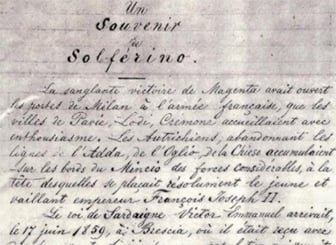 Un
Souvenir
de
Solférino.
La sanglante victoire de Magenta avait ouvert
les portes de Milan à l'armée française, que les
villes de Pavie, Lodi, Crémone accueillaient avec
enthousiasme. Les Autrichiens, abandonnant les
lignes de l'Adda, de l'Oglio, de la Chiese accumulaient
sur les bords du Mincio des forces considérables, à la
tête desquelles se plaçait résolument le jeune et
vaillant empereur François Joseph II.
Le roi de Sardaigne Victor Emmanuel arrivait
le 17 juin 1859, à Brescia, où il était reçu avec